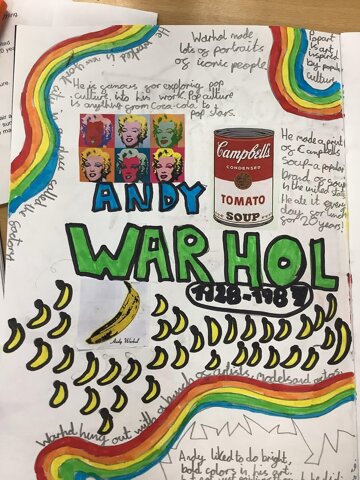 Warhol made
lots of portraits
of iconic people
Popart
is art
inspired
by popular
culture.
He worked in new york
in a den called the factory
He is famous for exploring pop
culture into his work. Pop culture
is anything from Coca-cola to
pop stars.
Campbell's
CONDENSED
TOMATO
SOUP
He made a print
of Campbells
soup a popular
brand of soup
in the united states
He ate it every
day for lunch
for 20 years!
ANDY
WARHOL
1928-1987
Andy Warhol
Warhol hung out with a bunch of artists, models and actors
Andy liked to do bright,
bold colors in his art.